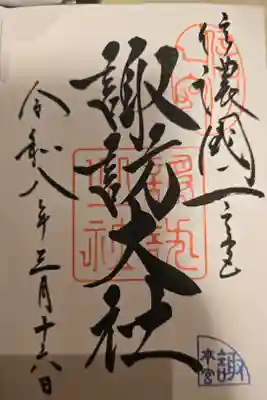 信濃國一之宮
諏訪大社
令和八年三月十六日
諏
本宮